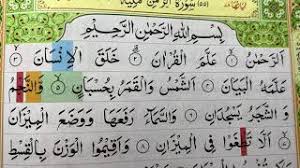 سُوْرَةُ الرَّحْمٰنِ مَدَنِيَّةٌ (٥٥)
بِسْمِ اللّٰهِ الرَّحْمٰنِ الرَّحِيْمِ
اَلرَّحْمٰنُ ۙ﴿١﴾ عَلَّمَ الْقُرْاٰنَ ۙ﴿٢﴾ خَلَقَ الْاِنْسَانَ ۙ﴿٣﴾
عَلَّمَهُ الْبَيَانَ ﴿٤﴾ اَلشَّمْسُ وَالْقَمَرُ بِحُسْبَانٍ ﴿٥﴾ وَّالنَّجْمُ
وَ الشَّجَرُ يَسْجُدَانِ ﴿٦﴾ وَالسَّمَآءَ رَفَعَهَا وَوَضَعَ الْمِيْزَانَ ﴿٧﴾
اَلَّا تَطْغَوْا فِي الْمِيْزَانِ ﴿٨﴾ وَاَقِيْمُوا الْوَزْنَ بِالْقِسْطِ